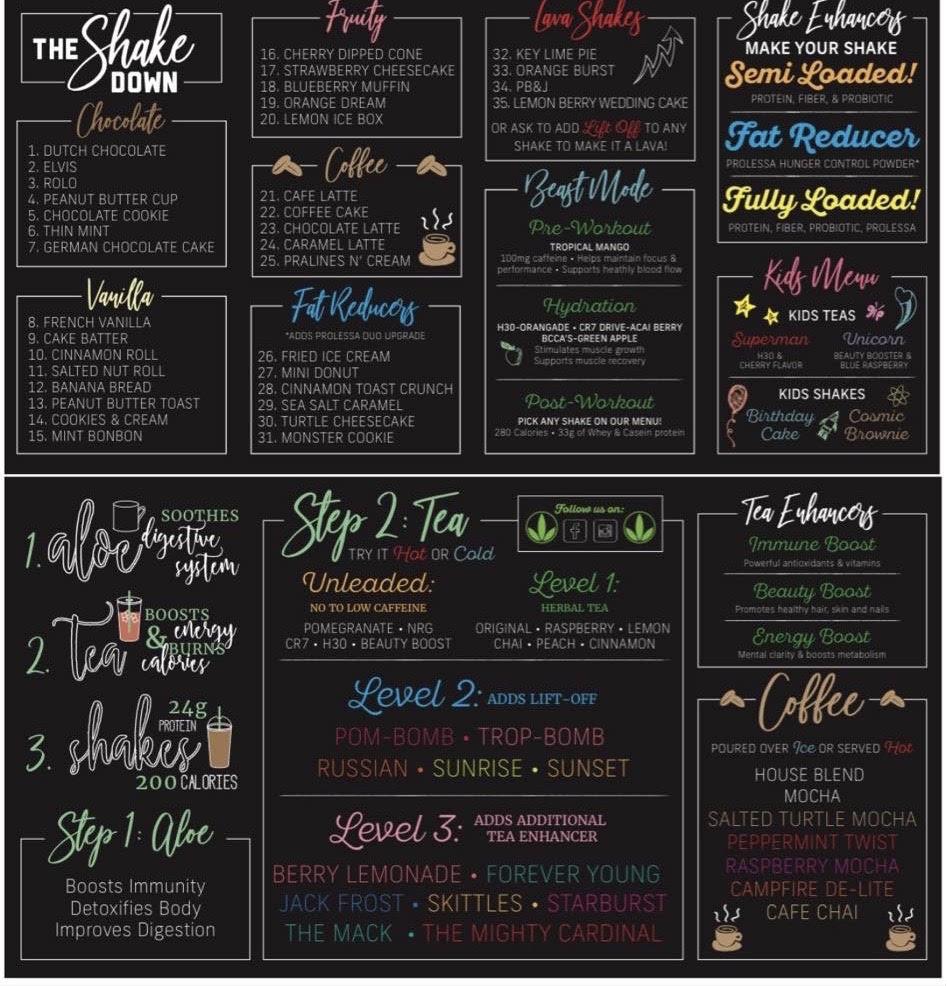 THE Shake
DOWN
Chocolate
1. DUTCH CHOCOLATE
2. ELVIS
3. ROLO
4. PEANUT BUTTER CUP
5. CHOCOLATE COOKIE
6. THIN MINT
7. GERMAN CHOCOLATE CAKE
Vanilla
8. FRENCH VANILLA
9. CAKE BATTER
10. CINNAMON ROLL
11. SALTED NUT ROLL
12. BANANA BREAD
13. PEANUT BUTTER TOAST
14. COOKIES & CREAM
15. MINT BONBON
Fruity
16. CHERRY DIPPED CONE
17. STRAWBERRY CHEESECAKE
18. BLUEBERRY MUFFIN
19. ORANGE DREAM
20. LEMON ICE BOX
Coffee
21. CAFE LATTE
22. COFFEE CAKE
23. CHOCOLATE LATTE
24. CARAMEL LATTE
25. PRALINES N' CREAM
Fat Reducers
*ADDS PROLESSA DUO UPGRADE
26. FRIED ICE CREAM
27. MINI DONUT
28. CINNAMON TOAST CRUNCH
29. SEA SALT CARAMEL
30. TURTLE CHEESECAKE
31. MONSTER COOKIE
Lava Shakes
32. KEY LIME PIE
33. ORANGE BURST
34. PB&J
35. LEMON BERRY WEDDING CAKE
OR ASK TO ADD Lift Off TO ANY
SHAKE TO MAKE IT A LAVA!
Beast Mode
Pre-Workout
TROPICAL MANGO
100mg caffeine • Helps maintain focus &
performance • Supports heathly blood flow
Hydration
H30-ORANGADE • CR7 DRIVE-ACAI BERRY
BCCA'S-GREEN APPLE
Stimulates muscle growth
Supports muscle recovery
Post-Workout
PICK ANY SHAKE ON OUR MENU!
280 Calories • 33g of Whey & Casein protein
Shake Enhancers
MAKE YOUR SHAKE
Semi Loaded!
PROTEIN, FIBER, & PROBIOTIC
Fat Reducer
PROLESSA HUNGER CONTROL POWDER*
Fully Loaded!
PROTEIN, FIBER, PROBIOTIC, PROLESSA
Kids Menu
KIDS TEAS
Superman
H30 &
CHERRY FLAVOR
Unicorn
BEAUTY BOOSTER &
BLUE RASPBERRY
KIDS SHAKES
Birthday
Cake
Cosmic
Brownie
1. aloe SOOTHES
digestive
system
2. tea BOOSTS
& energy
BURNS
calories
3. shakes 24g
PROTEIN
200 CALORIES
Step 1: Aloe
Boosts Immunity
Detoxifies Body
Improves Digestion
Step 2: Tea
TRY IT Hot OR Cold
Follow us on:
Unleaded:
NO TO LOW CAFFEINE
POMEGRANATE • NRG
CR7 • H30 • BEAUTY BOOST
Level 1:
HERBAL TEA
ORIGINAL • RASPBERRY • LEMON
CHAI • PEACH • CINNAMON
Level 2: ADDS LIFT-OFF
POM-BOMB • TROP-BOMB
RUSSIAN • SUNRISE • SUNSET
Level 3: ADDS ADDITIONAL
TEA ENHANCER
BERRY LEMONADE • FOREVER YOUNG
JACK FROST • SKITTLES • STARBURST
THE MACK • THE MIGHTY CARDINAL
Tea Enhancers
Immune Boost
Powerful antioxidants & vitamins
Beauty Boost
Promotes healthy hair, skin and nails
Energy Boost
Mental clarity & boosts metabolism
Coffee
POURED OVER Ice OR SERVED Hot
HOUSE BLEND
MOCHA
SALTED TURTLE MOCHA
PEPPERMINT TWIST
RASPBERRY MOCHA
CAMPFIRE DE-LITE
CAFE CHAI